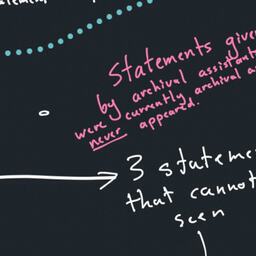 Statements give
by archival assistant
were currently archival a
never appeared.
3 stateme
that cannot
seen